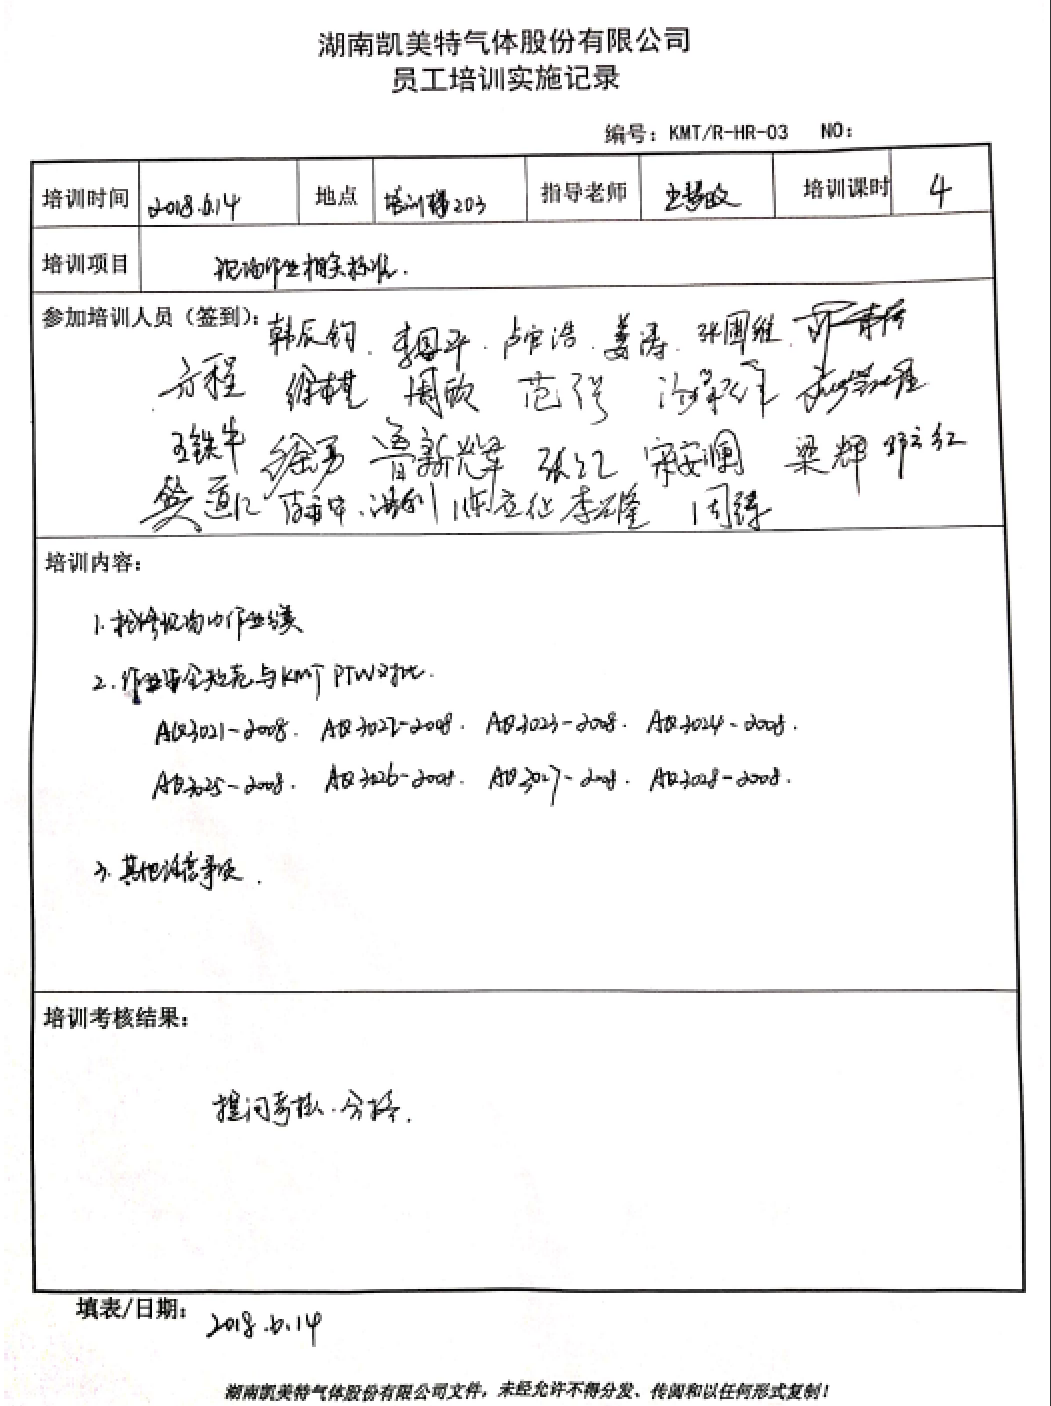 湖南凯美特气体股份有限公司
员工培训实施记录
编号：KMT/R-HR-03 NO：
培训时间 2018.6.14 地点 培训楼203 指导老师 培训课时 4
培训项目 作业相关标准.
参加培训人员（签到）： 韩辰钧. 李国平. 卢官浩. 姜涛. 张国维.
方程 周欣 范强
王铁牛 徐勇 鲁新光辉 宋安澜 梁辉 邓立红
樊道仁 陈立位 李石隆 周铸
培训内容：
1. 作业分类
2. 作业安全规范与KMT PTW对比.
AQ3021-2008. AQ3022-2008. AQ3023-2008. AQ3024-2008.
AQ3025-2008. AQ3026-2008. AQ3027-2008. AQ3028-2008.
3. 其他注意事项.
培训考核结果：
提问考核. 合格.
填表/日期： 2018.6.14
湖南凯美特气体股份有限公司文件，未经允许不得分发、传阅和以任何形式复制！